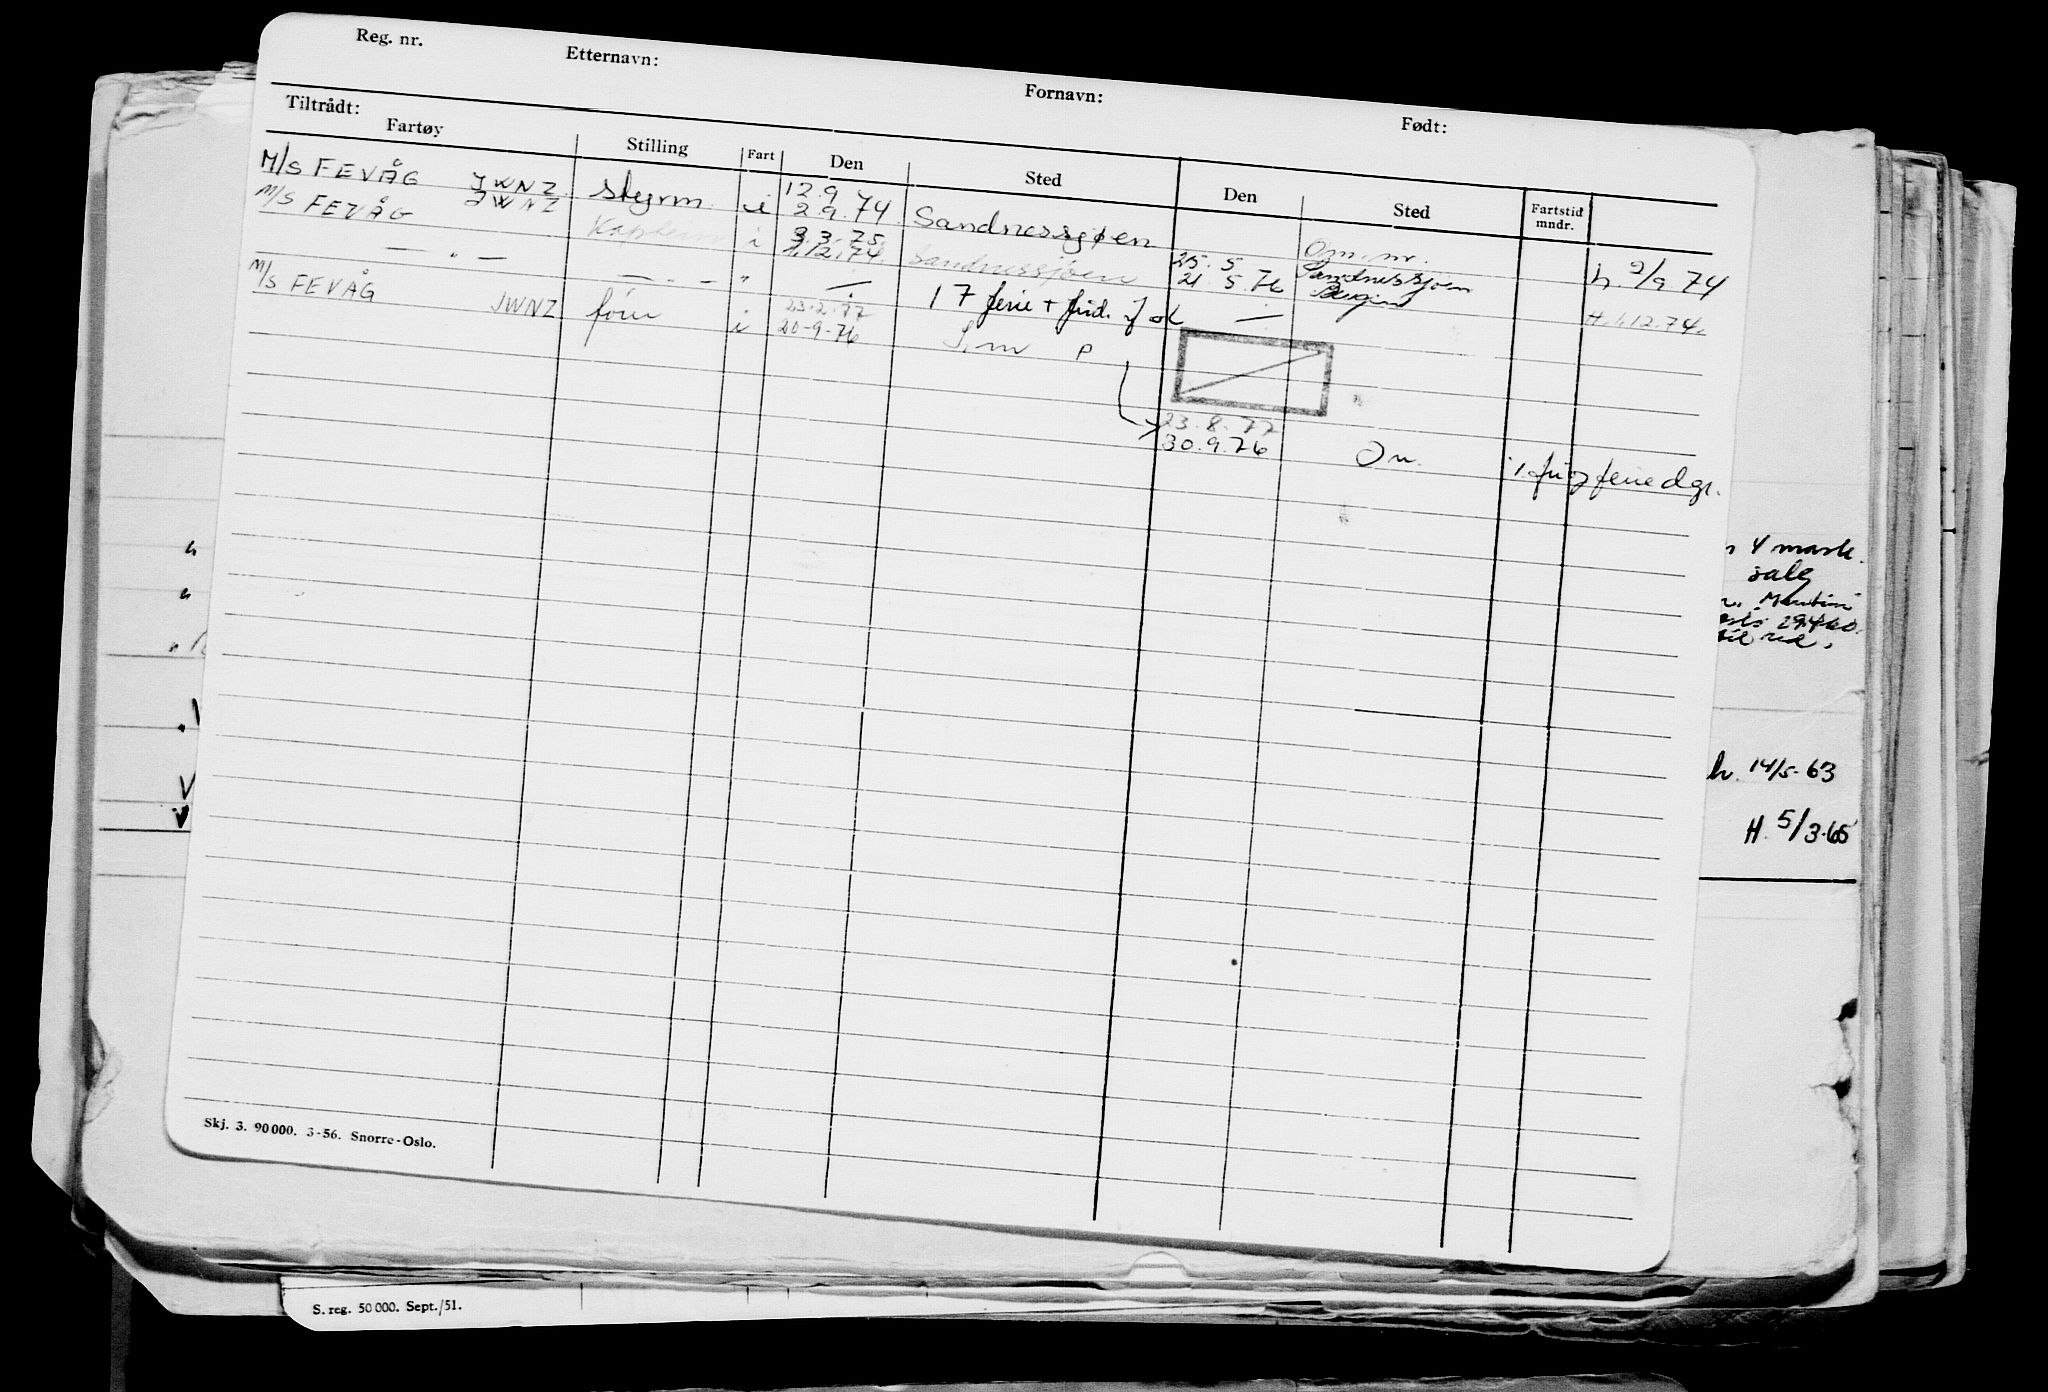 Reg. nr. Etternavn: Fornavn: Født:
Tiltrådt:
Fartøy Stilling Fart Den Sted Den Sted Fartstid mndr.
M/S FEVÅG JWNZ styrm. i 12.9 74
M/S FEVÅG JWNZ 2.9.74 Sandnessjøen h. 2/9 74
Kaptein i 3.3.75 Sandnessjøen 25.5 Sandnessjøen
— " — 1.12.74. 21.5 76 Bergen H. 1.12.74.
— " — 17 ferie + frid.
M/S FEVÅG JWNZ i 23.2.77
20-9-76
23.8.77
30.9.76
feriedgr.
4 mask.
salg
29460
h. 14/5-63
H. 5/3-65
Skj. 3. 90000. 3-56. Snorre-Oslo.
S. reg. 50 000. Sept./51.